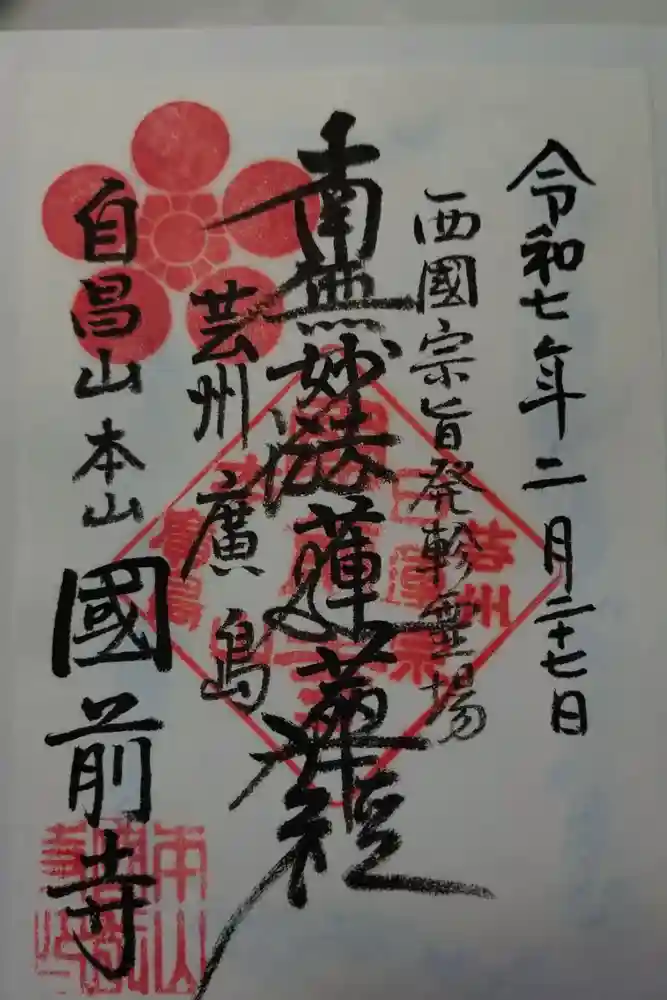 令和七年二月二十七日
西國宗旨発軫霊場
南無妙法蓮華経
芸州廣島
自昌山本山國前寺
芸州
日蓮宗
廣島
本山